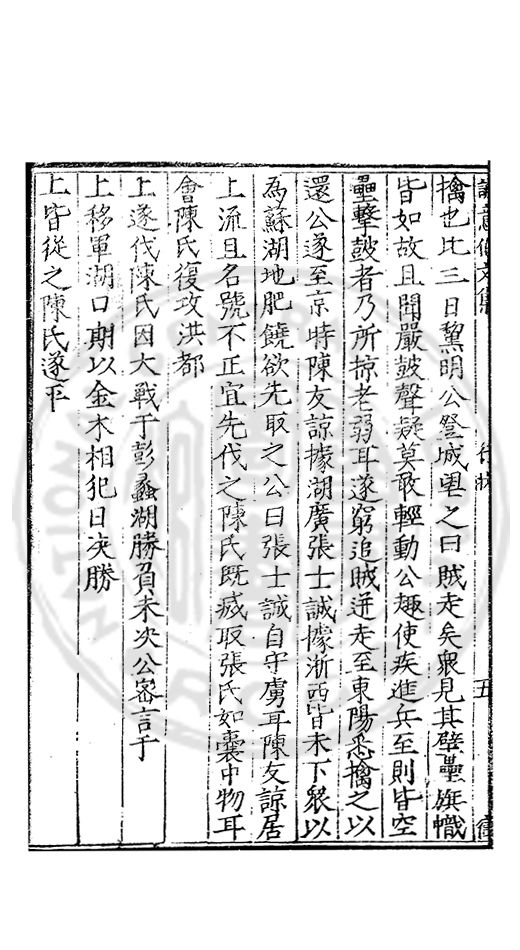 擒也比三日黎明公登城望之曰賊走矣衆見其壁壘旗幟
皆如故且聞嚴鼓聲疑莫敢輕動公趣使疾進兵至則皆空
壘擊鼓者乃所掠老弱耳遂窮追賊迸走至東陽悉擒之以
還公遂至京時陳友諒據湖廣張士誠據浙西皆未下衆以
為蘇湖地肥饒欲先取之公曰張士誠自守虜耳陳友諒居
上流且名號不正宜先伐之陳氏既滅取張氏如囊中物耳
會陳氏復攻洪都
上遂伐陳氏因大戰于彭蠡湖勝負未决公密言于
上移軍湖口期以金木相犯日决勝
上皆從之陳氏遂平